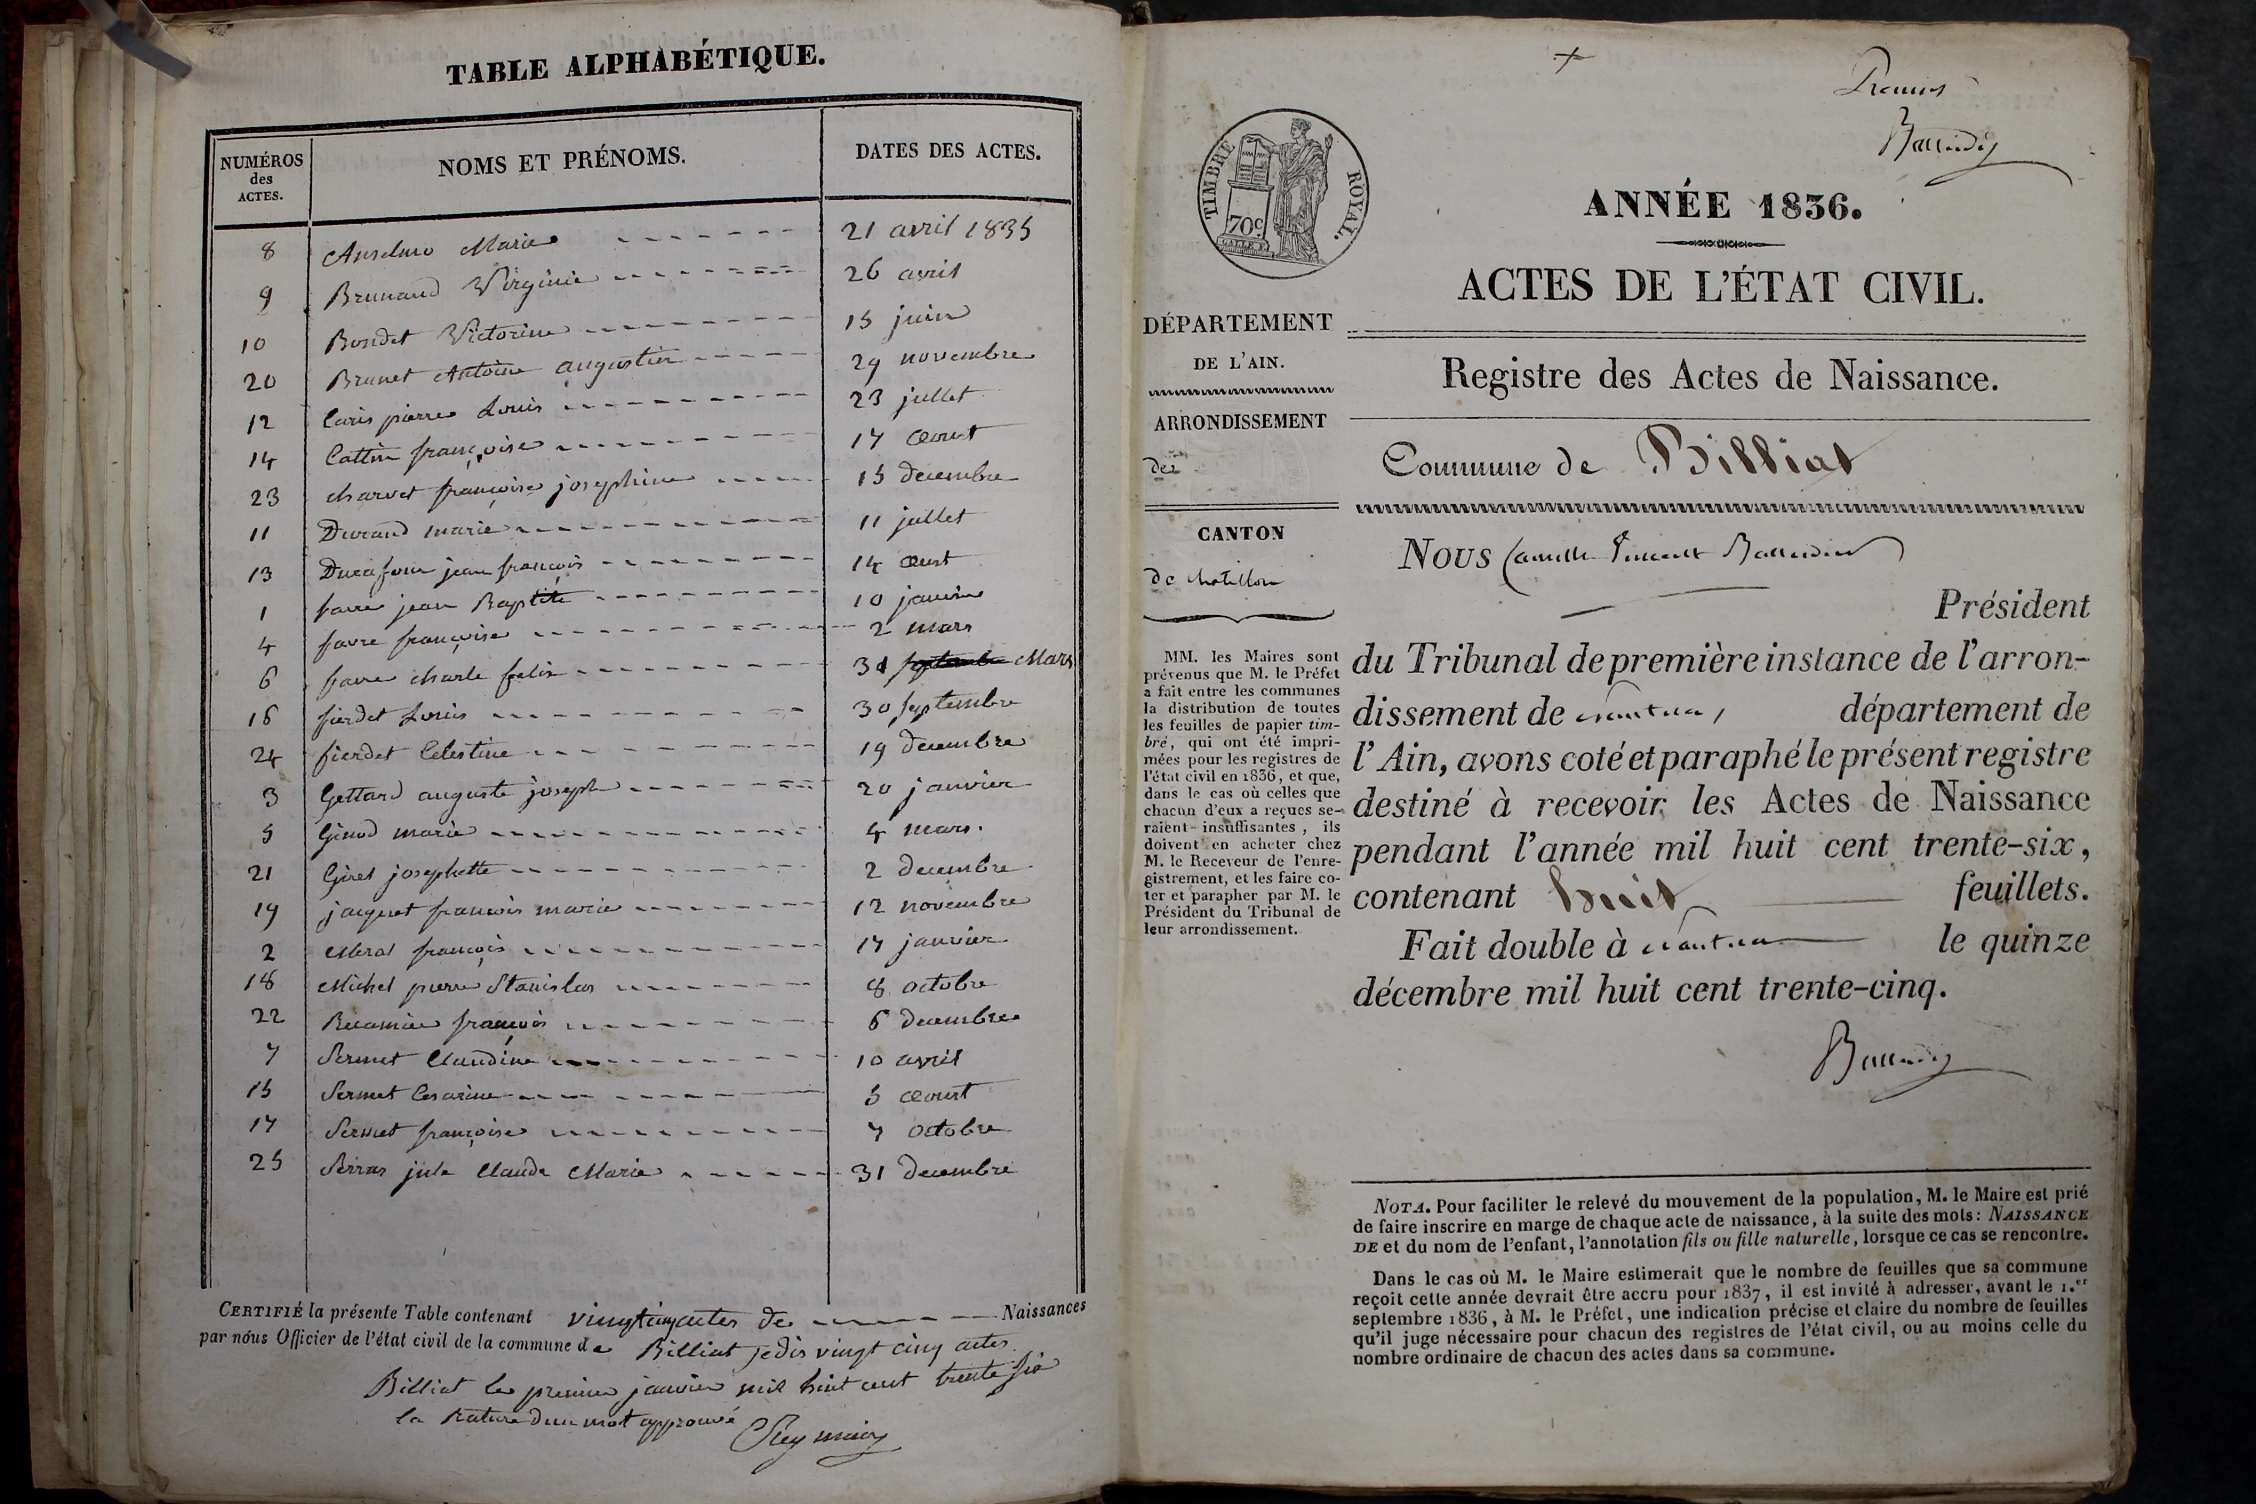 TABLE ALPHABÉTIQUE.
NUMÉROS
des
ACTES.
NOMS ET PRÉNOMS.
DATES DES ACTES.
8 Anselme Marie 21 avril 1835
9 Brunand Virginie 26 avril
10 Bondet Victorine 15 juin
20 Brunet Antoine augustin 29 novembre
12 Caris pierre Louis 23 jullet
14 Cattin françoise 17 aoust
23 charvet françoise josephine 15 decembre
11 Durand marie 11 jullet
13 Ducafour jean françois 14 oust
1 favre jean Baptiste 10 janvier
4 favre françoise 2 mars
6 favre charle felix 31 septembre Mars
16 fierdet Louis 30 septembre
24 fierdet Celestine 19 decembre
3 Gettard auguste joseph 20 janvier
5 Ginod marie 4 mars.
21 Girel josephette 2 decembre
19 françois marie 12 novembre
2 Meral françois 17 janvier
18 Michel pierre Stanislas 8 octobre
22 Recamier françois 6 decembre
7 Sermet Claudine 10 avril
15 Sermet Cesarine 5 aoust
17 Sermet françoise 7 octobre
25 Serras jule Claude Marie 31 decembre
CERTIFIÉ la présente Table contenant vingtcinq actes de Naissances
par nous Officier de l'état civil de la commune de Billiat je dis vingt cinq actes
Billiat le premier janvier mil huit cent trente six
la Rature d'un mot approuvé
Premier
TIMBRE ROYAL.
70c
ANNÉE 1836.
ACTES DE L'ÉTAT CIVIL.
DÉPARTEMENT
DE L'AIN.
ARRONDISSEMENT
de
CANTON
de chatillon
MM. les Maires sont
prévenus que M. le Préfet
a fait entre les communes
la distribution de toutes
les feuilles de papier tim-
bré, qui ont été impri-
mées pour les registres de
l'état civil en 1836, et que,
dans le cas où celles que
chacun d'eux a reçues se-
raient insuffisantes, ils
doivent en acheter chez
M. le Receveur de l'enre-
gistrement, et les faire co-
ter et parapher par M. le
Président du Tribunal de
leur arrondissement.
Registre des Actes de Naissance.
Commune de Billiat
Nous Camille Vincent
Président
du Tribunal de première instance de l'arron-
dissement de Nantua, département de
l'Ain, avons coté et paraphé le présent registre
destiné à recevoir les Actes de Naissance
pendant l'année mil huit cent trente-six,
contenant huit feuillets.
Fait double à Nantua le quinze
décembre mil huit cent trente-cinq.
NOTA. Pour faciliter le relevé du mouvement de la population, M. le Maire est prié
de faire inscrire en marge de chaque acte de naissance, à la suite des mots: NAISSANCE
DE et du nom de l'enfant, l'annotation fils ou fille naturelle, lorsque ce cas se rencontre.
Dans le cas où M. le Maire estimerait que le nombre de feuilles que sa commune
reçoit cette année devrait être accru pour 1837, il est invité à adresser, avant le 1.er
septembre 1836, à M. le Préfet, une indication précise et claire du nombre de feuilles
qu'il juge nécessaire pour chacun des registres de l'état civil, ou au moins celle du
nombre ordinaire de chacun des actes dans sa commune.